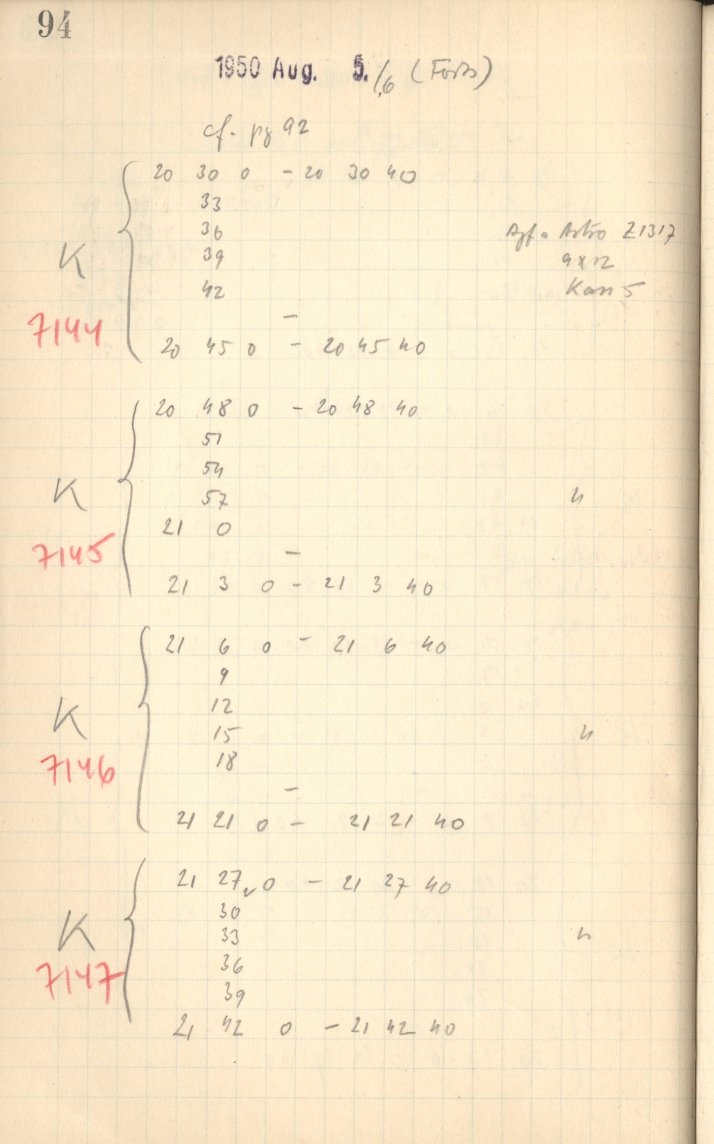 94
1950 Aug. 5./6 (Forts)
cf. pg 92
20 30 0 - 20 30 40
33
36
Astro Z1317
39
9x12
K
42
Kass 5
7144
-
20 45 0 - 20 45 40
20 48 0 - 20 48 40
51
54
K
57
"
21 0
7145
-
21 3 0 - 21 3 40
21 6 0 - 21 6 40
9
12
K
15
"
18
7146
-
21 21 0 - 21 21 40
21 27 0 - 21 27 40
30
K
33
"
36
7147
39
21 42 0 - 21 42 40